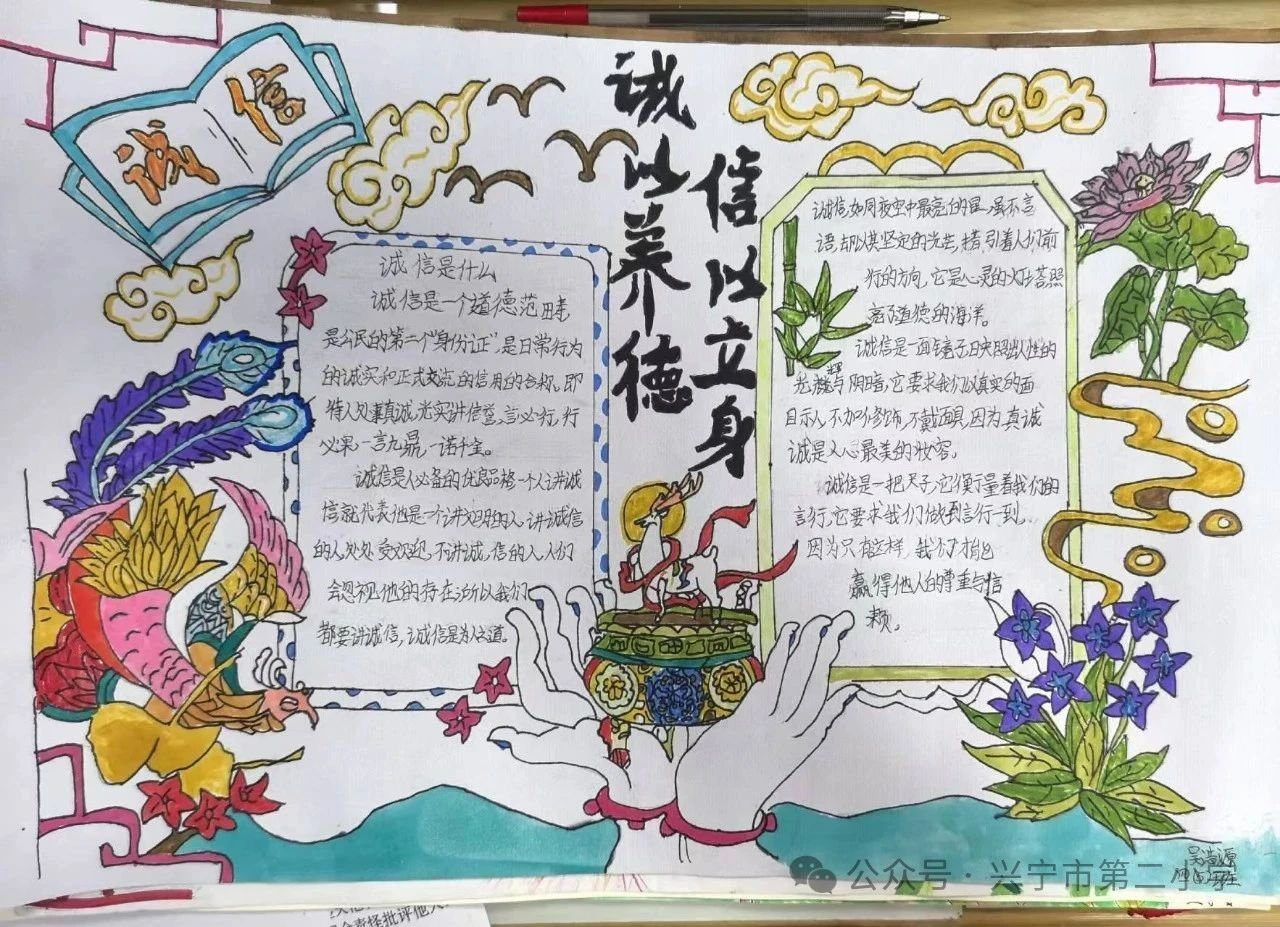 诚信
诚以养德
信以立身
诚信是什么
诚信是一个道德范畴
是公民的第二个“身份证”,是日常行为
的诚实和正式交流的信用的合称。即
待人处事真诚、光实讲信誉,言必行,行
必果一言九鼎,一诺千金。
诚信是人必备的优良品格一个人讲诚
信就代表他是一个讲文明的人。讲诚信
的人处处受欢迎,不讲诚,信的人,人们
会忽视他的存在所以我们
都要讲诚信,诚信是为人之道。
诚信,如同夜空中最亮的星,虽不言
语,却以其坚定的光芒,指引着人们前
行的方向,它是心灵的灯塔照
亮了道德的海洋。
诚信是一面镜子,映照出人性的
光辉与阴暗,它要求我们以真实的面
目示人,不加修饰,不戴面具,因为真诚
诚是人心最美的妆容。
诚信是一把尺子,它衡量着我们的
言行,它要求我们做到言行一到,
因为只有这样,我们才能
赢得他人的尊重与信
赖。
公众号·兴宁市第二小